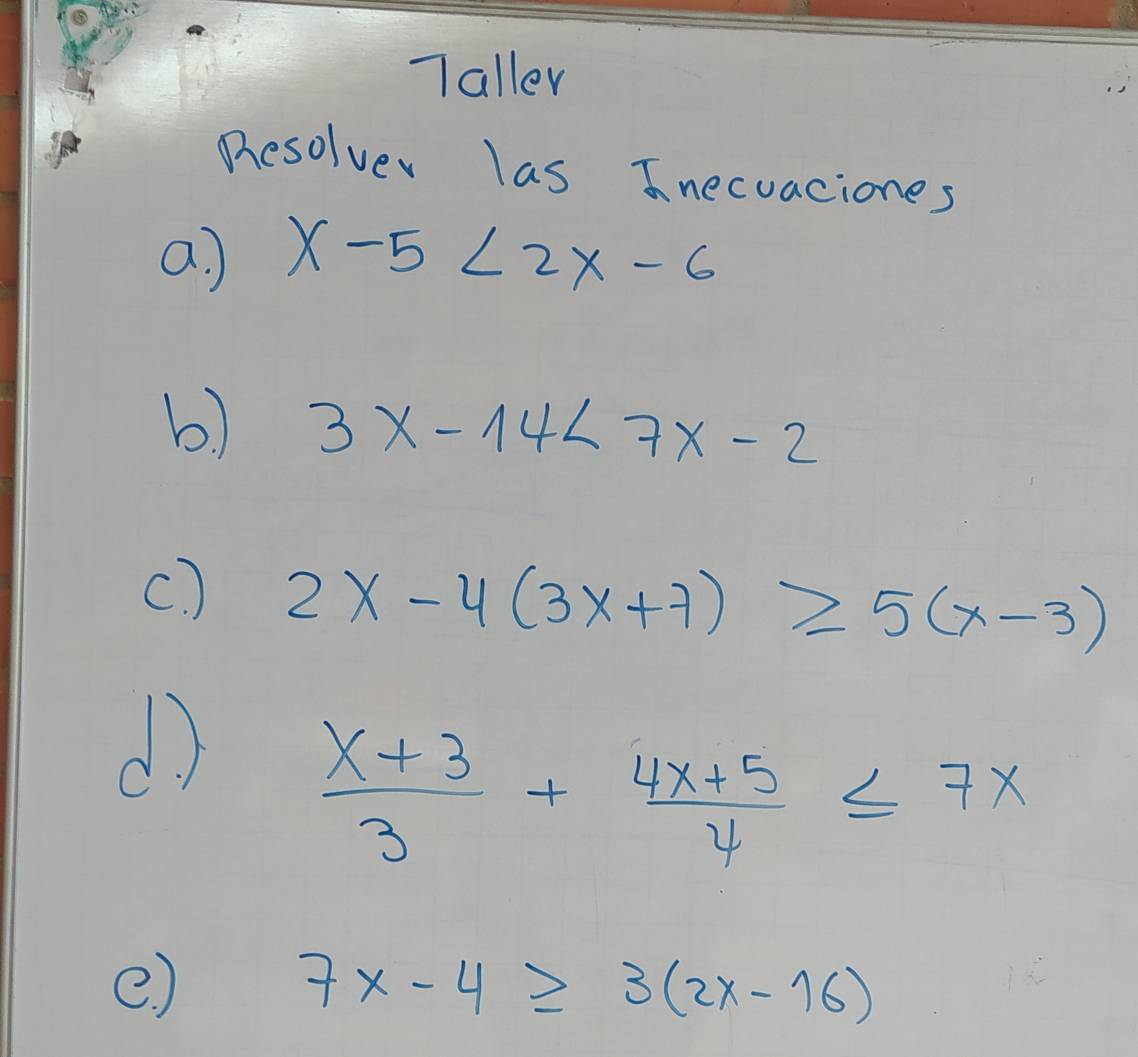 Taller
Resolver las Inecuaciones
a.) x - 5 < 2x - 6
b.) 3x - 14 < 7x - 2
c.) 2x - 4(3x+7) ≥ 5(x-3)
d.) \frac{x+3}{3} + \frac{4x+5}{4} ≤ 7x
e.) 7x - 4 ≥ 3(2x - 16)